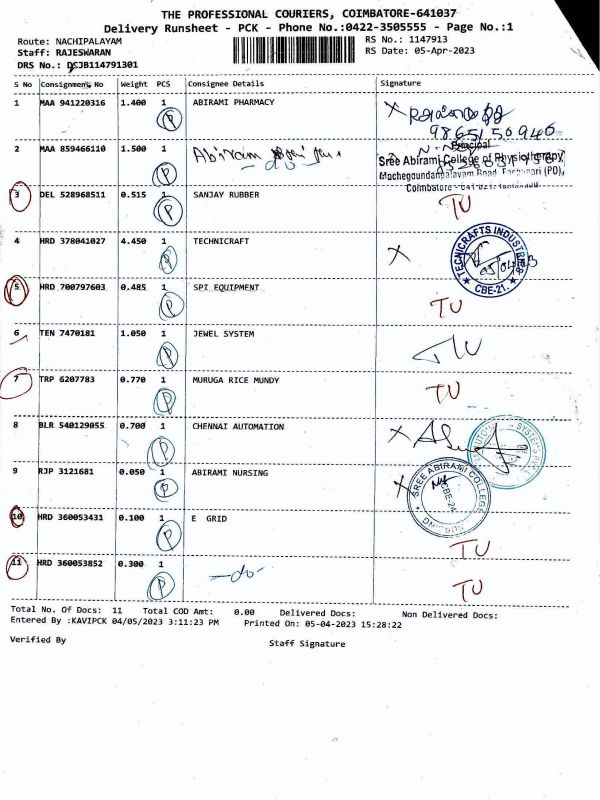 THE PROFESSIONAL COURIERS, COIMBATORE-641037
Delivery Runsheet - PCK - Phone No.:0422-3505555 - Page No.:1
Route: NACHIPALAYAM RS No.: 1147913
Staff: RAJESWARAN RS Date: 05-Apr-2023
DRS No.: DSJB114791301
S No Consignment No Weight PCS Consignee Details Signature
1 MAA 941220316 1.400 1 ABIRAMI PHARMACY
P
9865150940
2 MAA 859466110 1.500 1 Abiram
P -do-
Principal
Sree Abirami College of Physiotherapy,
3 DEL 528968511 0.515 1 SANJAY RUBBER
P TU
4 HRD 378041027 4.450 1 TECHNICRAFT
P
TECHNICRAFTS INDUSTRIES
CBE-21.
5 HRD 700797603 0.485 1 SPI EQUIPMENT
P TU
6 TEN 7470181 1.050 1 JEWEL SYSTEM
P TU
7 TRP 6207783 0.770 1 MURUGA RICE MUNDY
P TU
8 BLR 540129055 0.700 1 CHENNAI AUTOMATION
P
9 RJP 3121681 0.050 1 ABIRAMI NURSING
P
SREE ABIRAMI COLLEGE
CBE-24.
10 HRD 360053431 0.100 1 E GRID
P TU
11 HRD 360053852 0.300 1 -do-
P TU
Total No. Of Docs: 11 Total COD Amt: 0.00 Delivered Docs: Non Delivered Docs:
Entered By :KAVIPCK 04/05/2023 3:11:23 PM Printed On: 05-04-2023 15:28:22
Verified By Staff Signature